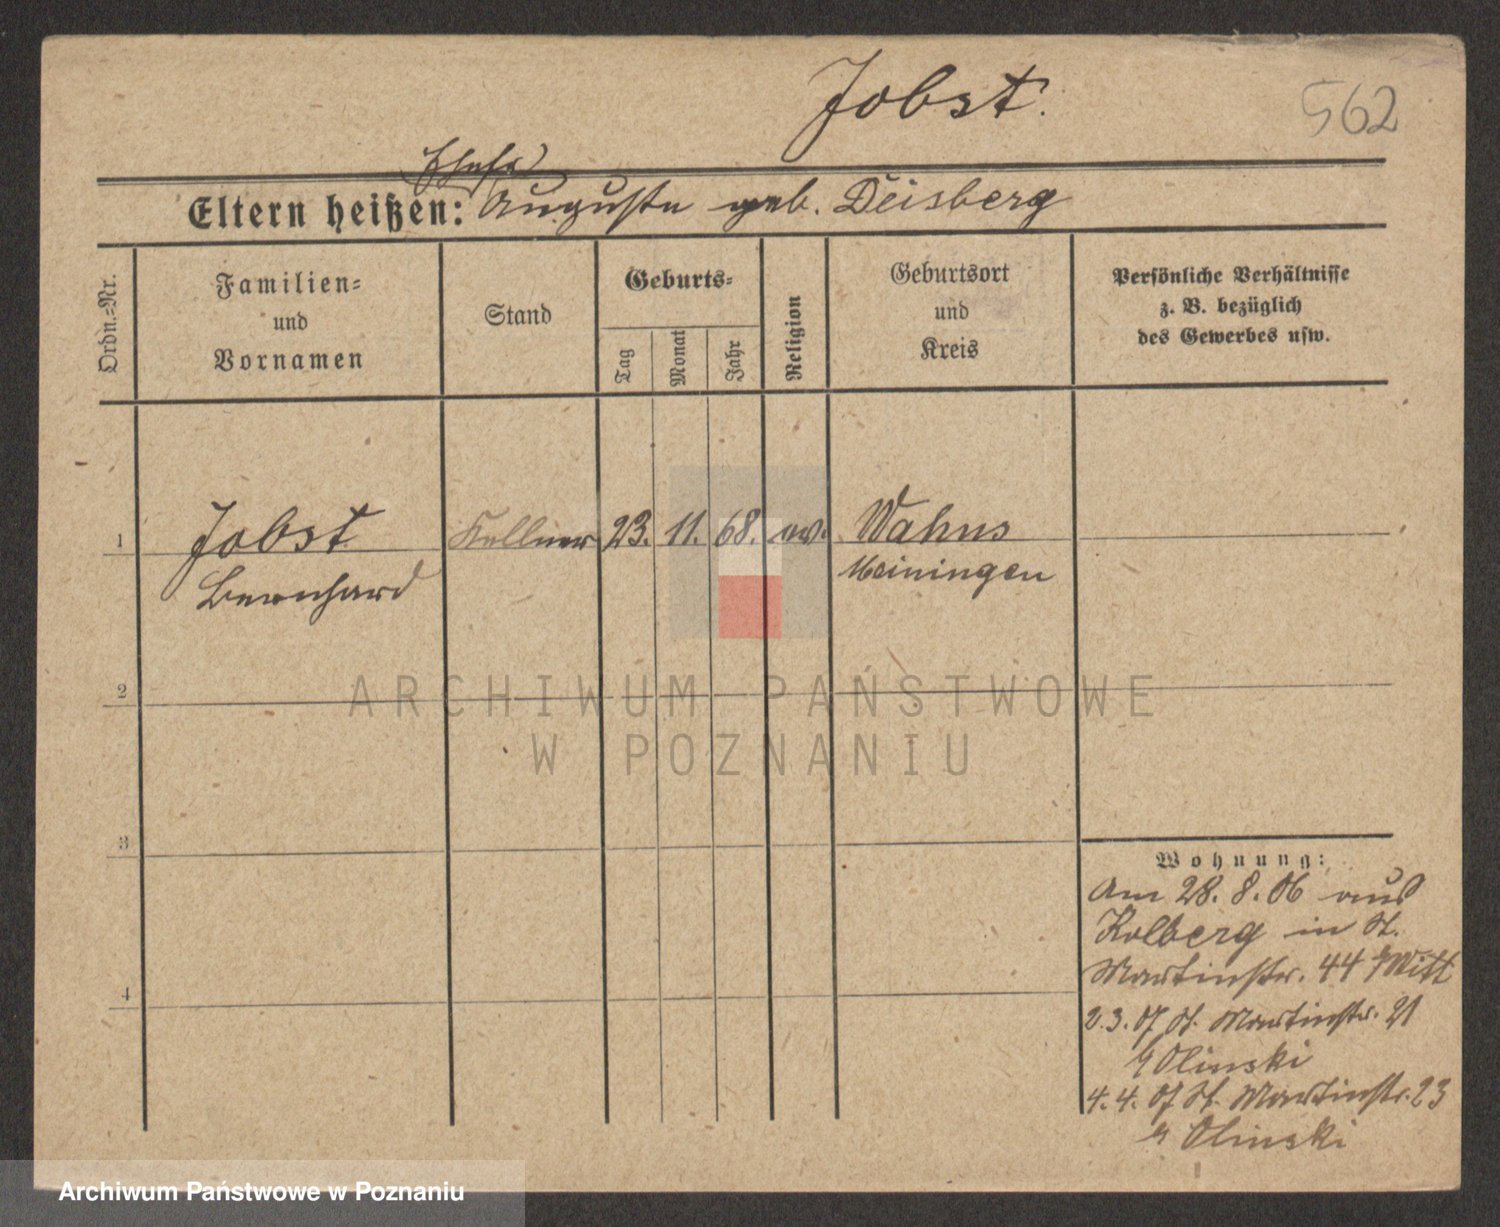 Jobst.
562
Eltern heißen: Auguste geb. Deisberg
Ordn.-Nr.
Familien-
und
Vornamen
Stand
Geburts-
Tag
Monat
Jahr
Religion
Geburtsort
und
Kreis
Persönliche Verhältnisse
z. B. bezüglich
des Gewerbes usw.
1 Jobst Kellner 23. 11. 68. ev. Wahns
Bernhard Meiningen
2
3
4
Wohnung:
Am 28. 8. 06 aus
Kolberg in St.
Martinstr. 44 b/Witt
2. 3. 07 St. Martinstr. 21
b/Olinski
4. 4. 07 St. Martinstr. 23
b/Olinski
ARCHIWUM PAŃSTWOWE
W POZNANIU
Archiwum Państwowe w Poznaniu